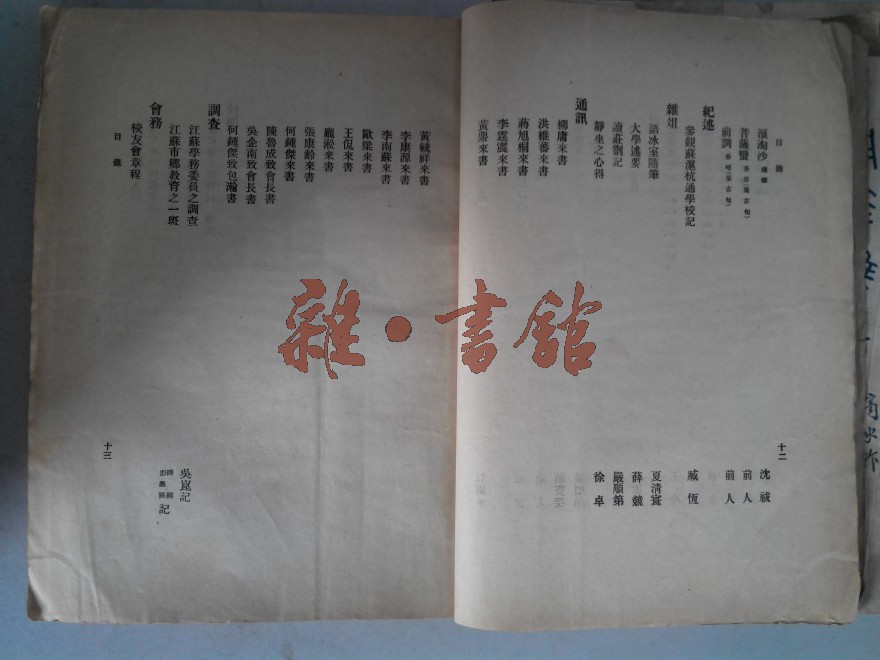 目錄
浪淘沙
沈祓
菩薩蠻
前人
前調
前人
紀述
參觀蘇滬杭通學校記
臧恆
雜俎
語冰室隨筆
夏清寰
大學述要
薛競
讀莊劄記
嚴順第
靜坐之心得
徐卓
通訊
柳庸來書
洪維蕃來書
蔣旭桐來書
李霆震來書
黃鼎來書
十二
黃毓祥來書
李康源來書
李南蘇來書
歐梁來書
王侃來書
龐淞來書
張康齡來書
何鍾傑來書
陳魯成致會長書
吳企南致會長書
何鍾傑致包瀚書
調查
江蘇學務委員之調查
吳崑記
江蘇市鄉教育之一斑
記
會務
校友會章程
目錄
十三
雜·書館